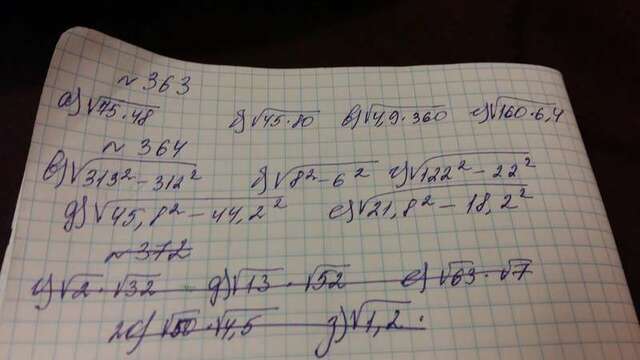 № 363
а) √75·48 б) √45·80 в) √4,9·360 г) √160·6,4
№ 364
в) √313² - 312² б) √8² - 6² г) √122² - 22²
д) √45,8² - 44,2² е) √21,8² - 18,2²
№ 372
г) √2 · √32 д) √13 · √52 е) √63 · √7
ж) √50 · √4,5 з) √1,2 ·